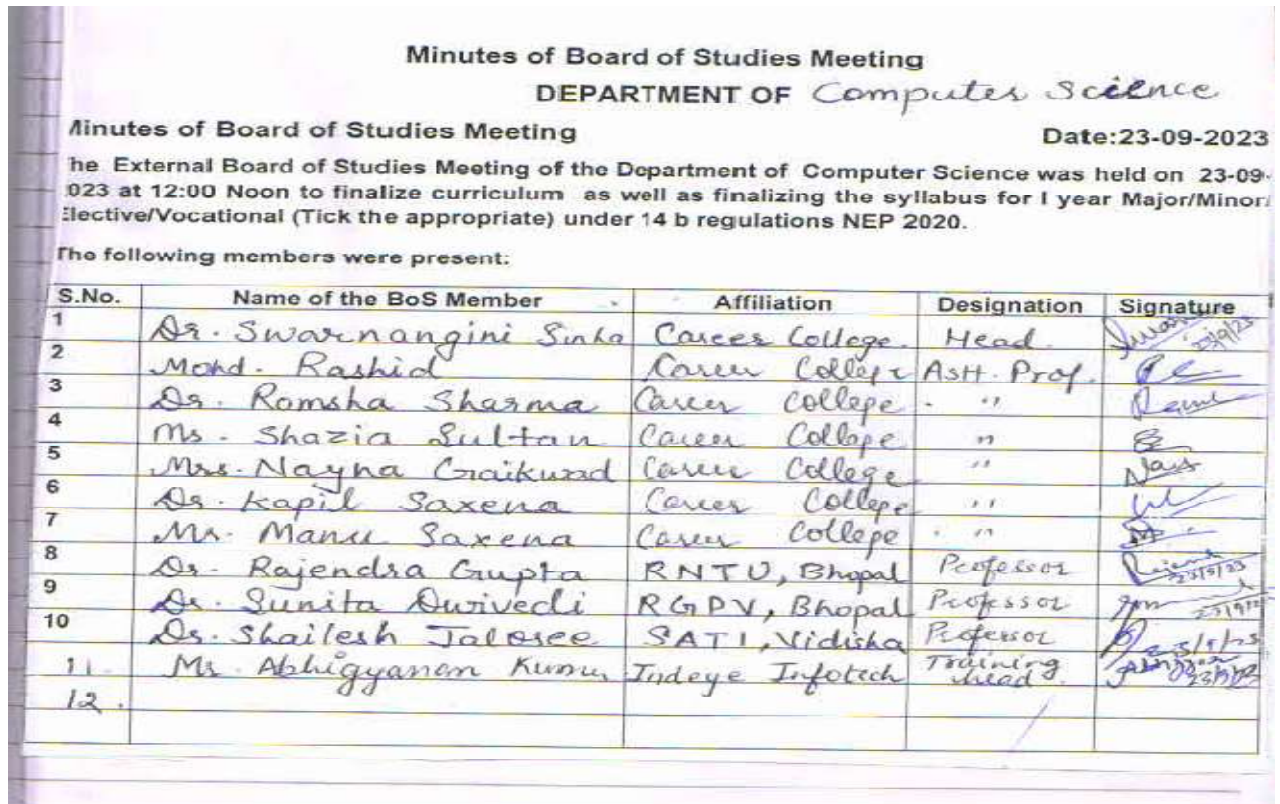 Minutes of Board of Studies Meeting
DEPARTMENT OF Computer Science
Minutes of Board of Studies Meeting Date:23-09-2023
he External Board of Studies Meeting of the Department of Computer Science was held on 23-09-
023 at 12:00 Noon to finalize curriculum as well as finalizing the syllabus for I year Major/Minor/
Elective/Vocational (Tick the appropriate) under 14 b regulations NEP 2020.
The following members were present:
S.No. Name of the BoS Member Affiliation Designation Signature
1 Dr. Swarnangini Sinha Career College. Head. 23/9/23
2 Mohd. Rashid Career College Astt. Prof.
3 Dr. Romsha Sharma Career College. "
4 Ms. Shazia Sultan Career College "
5 Mrs. Nayna Gaikwad Career College "
6 Dr. Kapil Saxena Career College "
7 Mr. Manu Saxena Career College "
8 Dr. Rajendra Gupta RNTU, Bhopal Professor 23/9/23
9 Dr. Sunita Dwivedi RGPV, Bhopal Professor
10 Dr. Shailesh Jaloree SATI, Vidisha Professor
11. Mr. Abhigyanam Kumar Indeye Infotech Training head.
12.